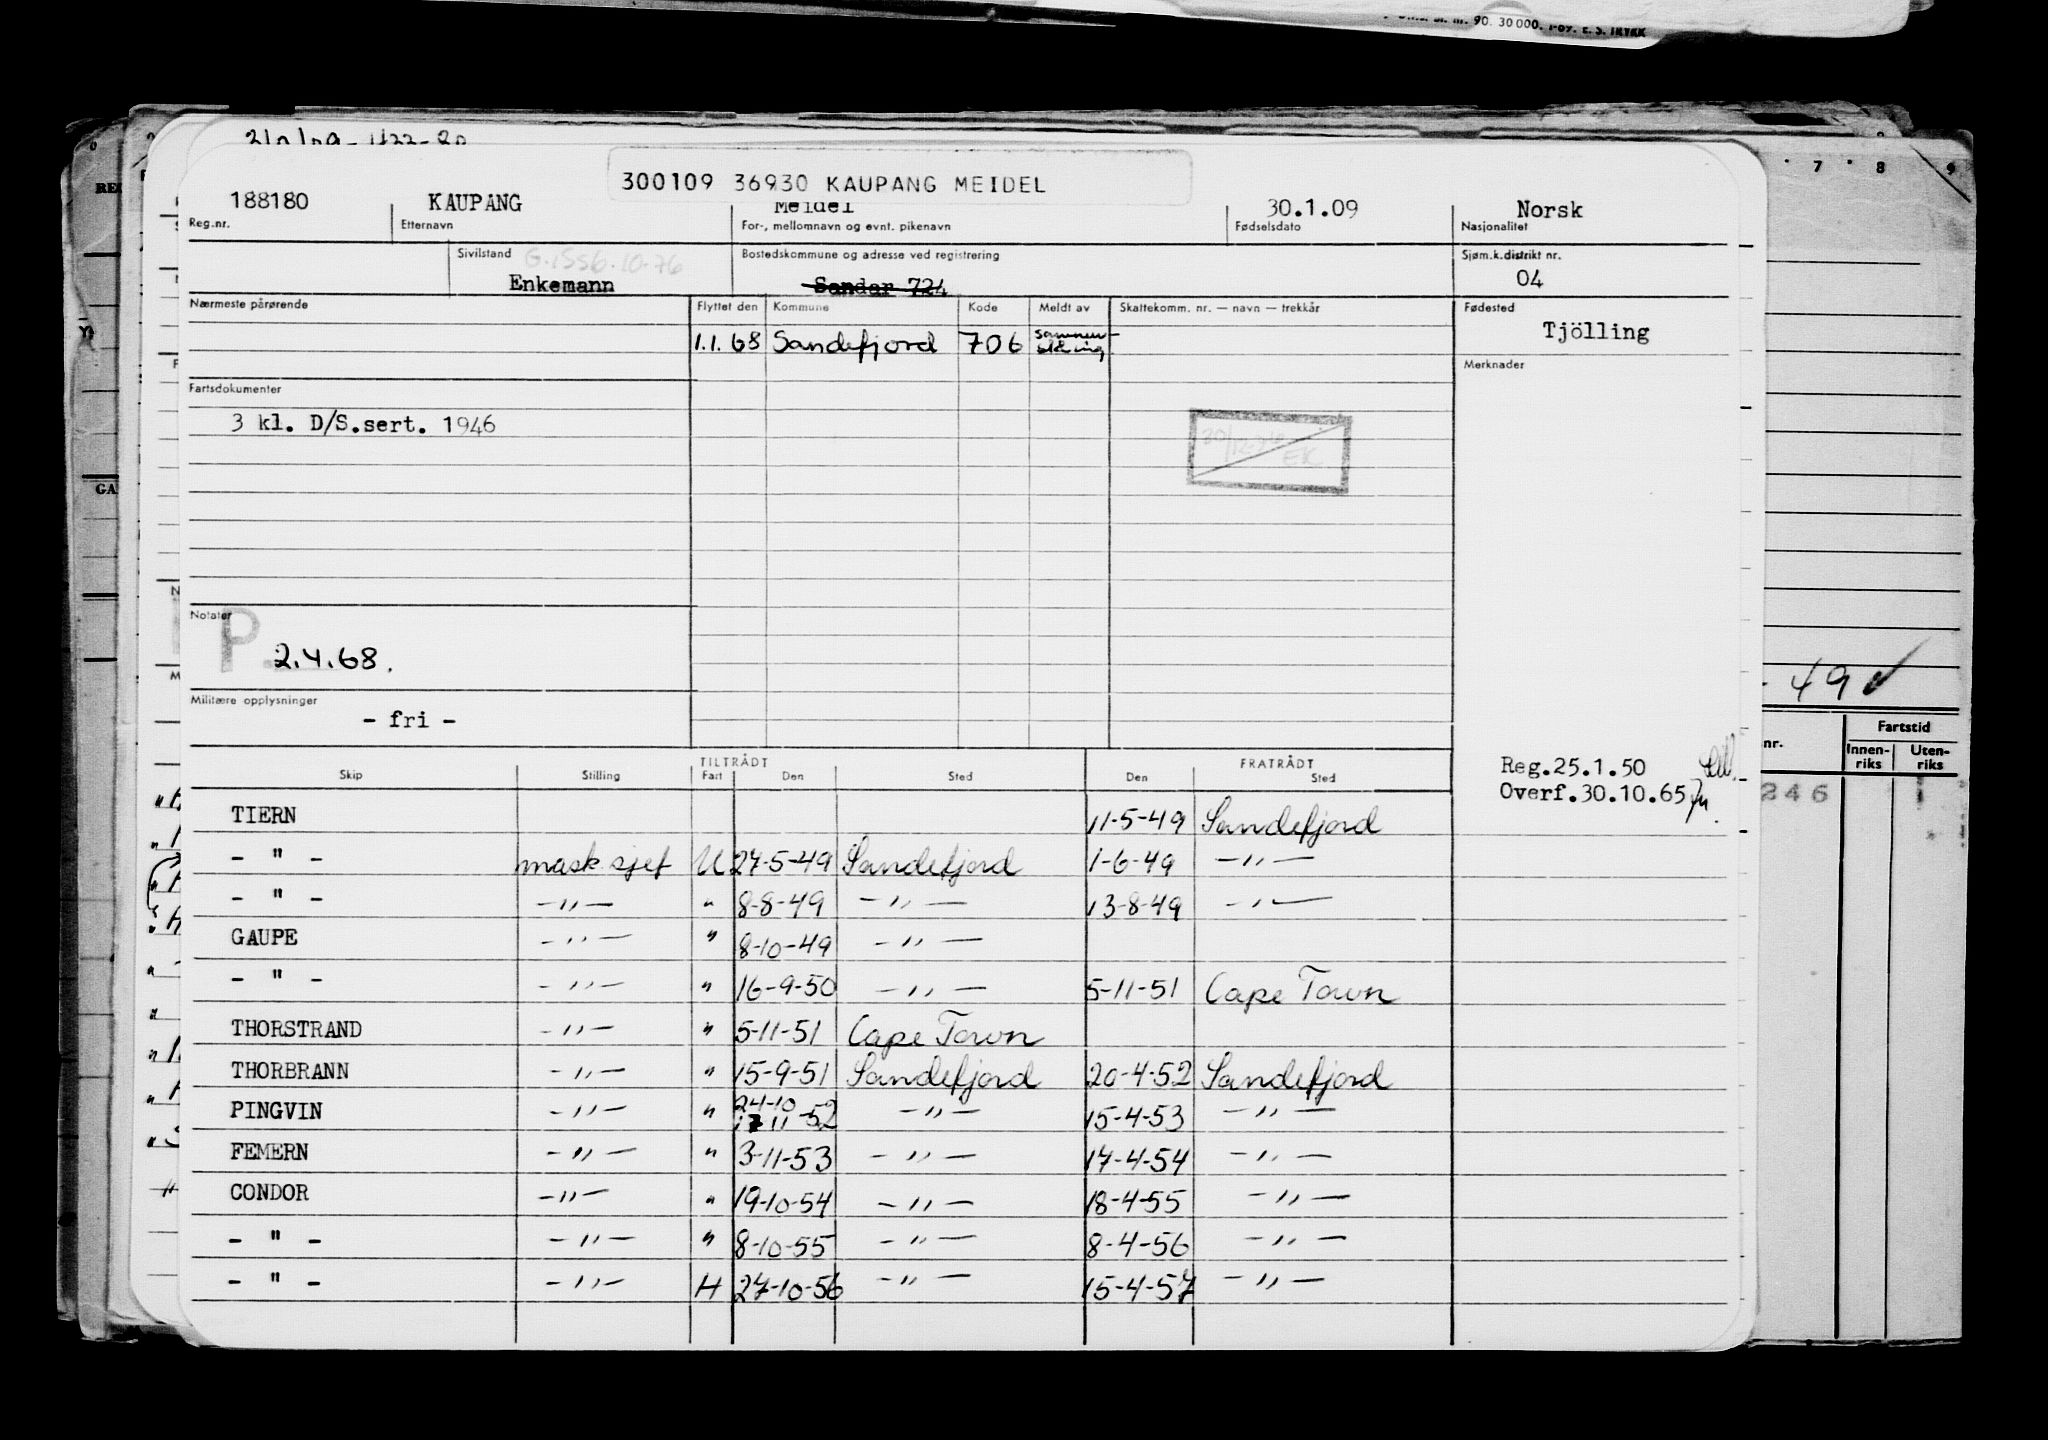 90. 30 000.
300109 36930 KAUPANG MEIDEL
188180 KAUPANG Meidel 30.1.09 Norsk
Reg.nr. Etternavn For-, mellomnavn og evnt. pikenavn Fødselsdato Nasjonalitet
Sivilstand G.1556.10.76 Bostedskommune og adresse ved registrering Sjøm.k.distrikt nr.
Enkemann Sandar 724 04
Nærmeste pårørende Flyttet den Kommune Kode Meldt av Skattekomm. nr. — navn — trekkår Fødested
1.1.68 Sandefjord 706 Tjölling
Merknader
Fartsdokumenter
3 kl. D/S.sert. 1946
EK
Notater
P.
2.4.68.
Militære opplysninger
- fri -
- 49
TILTRÅDT FRATRÅDT
Skip Stilling Fart Den Sted Den Sted
Reg.25.1.50
Overf.30.10.65
nr. Fartstid
Innen-riks Uten-riks
246
TIERN 11-5-49 Sandefjord
- " - mask sjef U 27-5-49 Sandefjord 1-6-49 - " -
- " - - " - " 8-8-49 - " - 13-8-49 - " -
GAUPE - " - " 8-10-49 - " -
- " - - " - " 16-9-50 - " - 5-11-51 Cape Town
THORSTRAND - " - " 5-11-51 Cape Town
THORBRANN - " - " 15-9-51 Sandefjord 20-4-52 Sandefjord
PINGVIN - " - " 24-10 17 11 -52 - " - 15-4-53 - " -
FEMERN - " - " 3-11-53 - " - 17-4-54 - " -
CONDOR - " - " 19-10-54 - " - 18-4-55 - " -
- " - - " - " 8-10-55 - " - 8-4-56 - " -
- " - - " - H 27-10-56 - " - 15-4-57 - " -